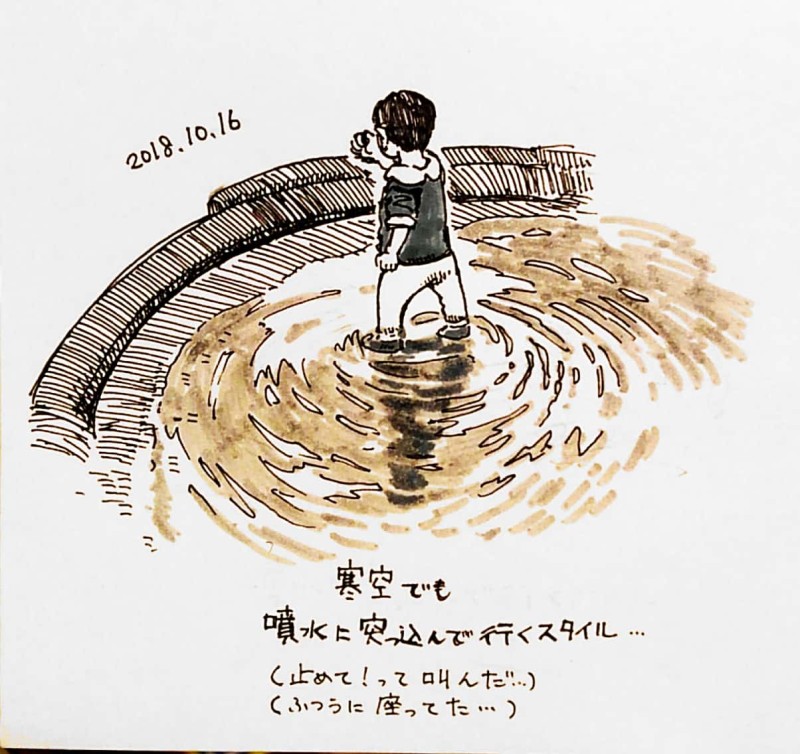 2018.10.16
寒空でも
噴水に突っ込んで行くスタイル…
(止めて！って叫んだ…)
(ふつうに座ってた…)